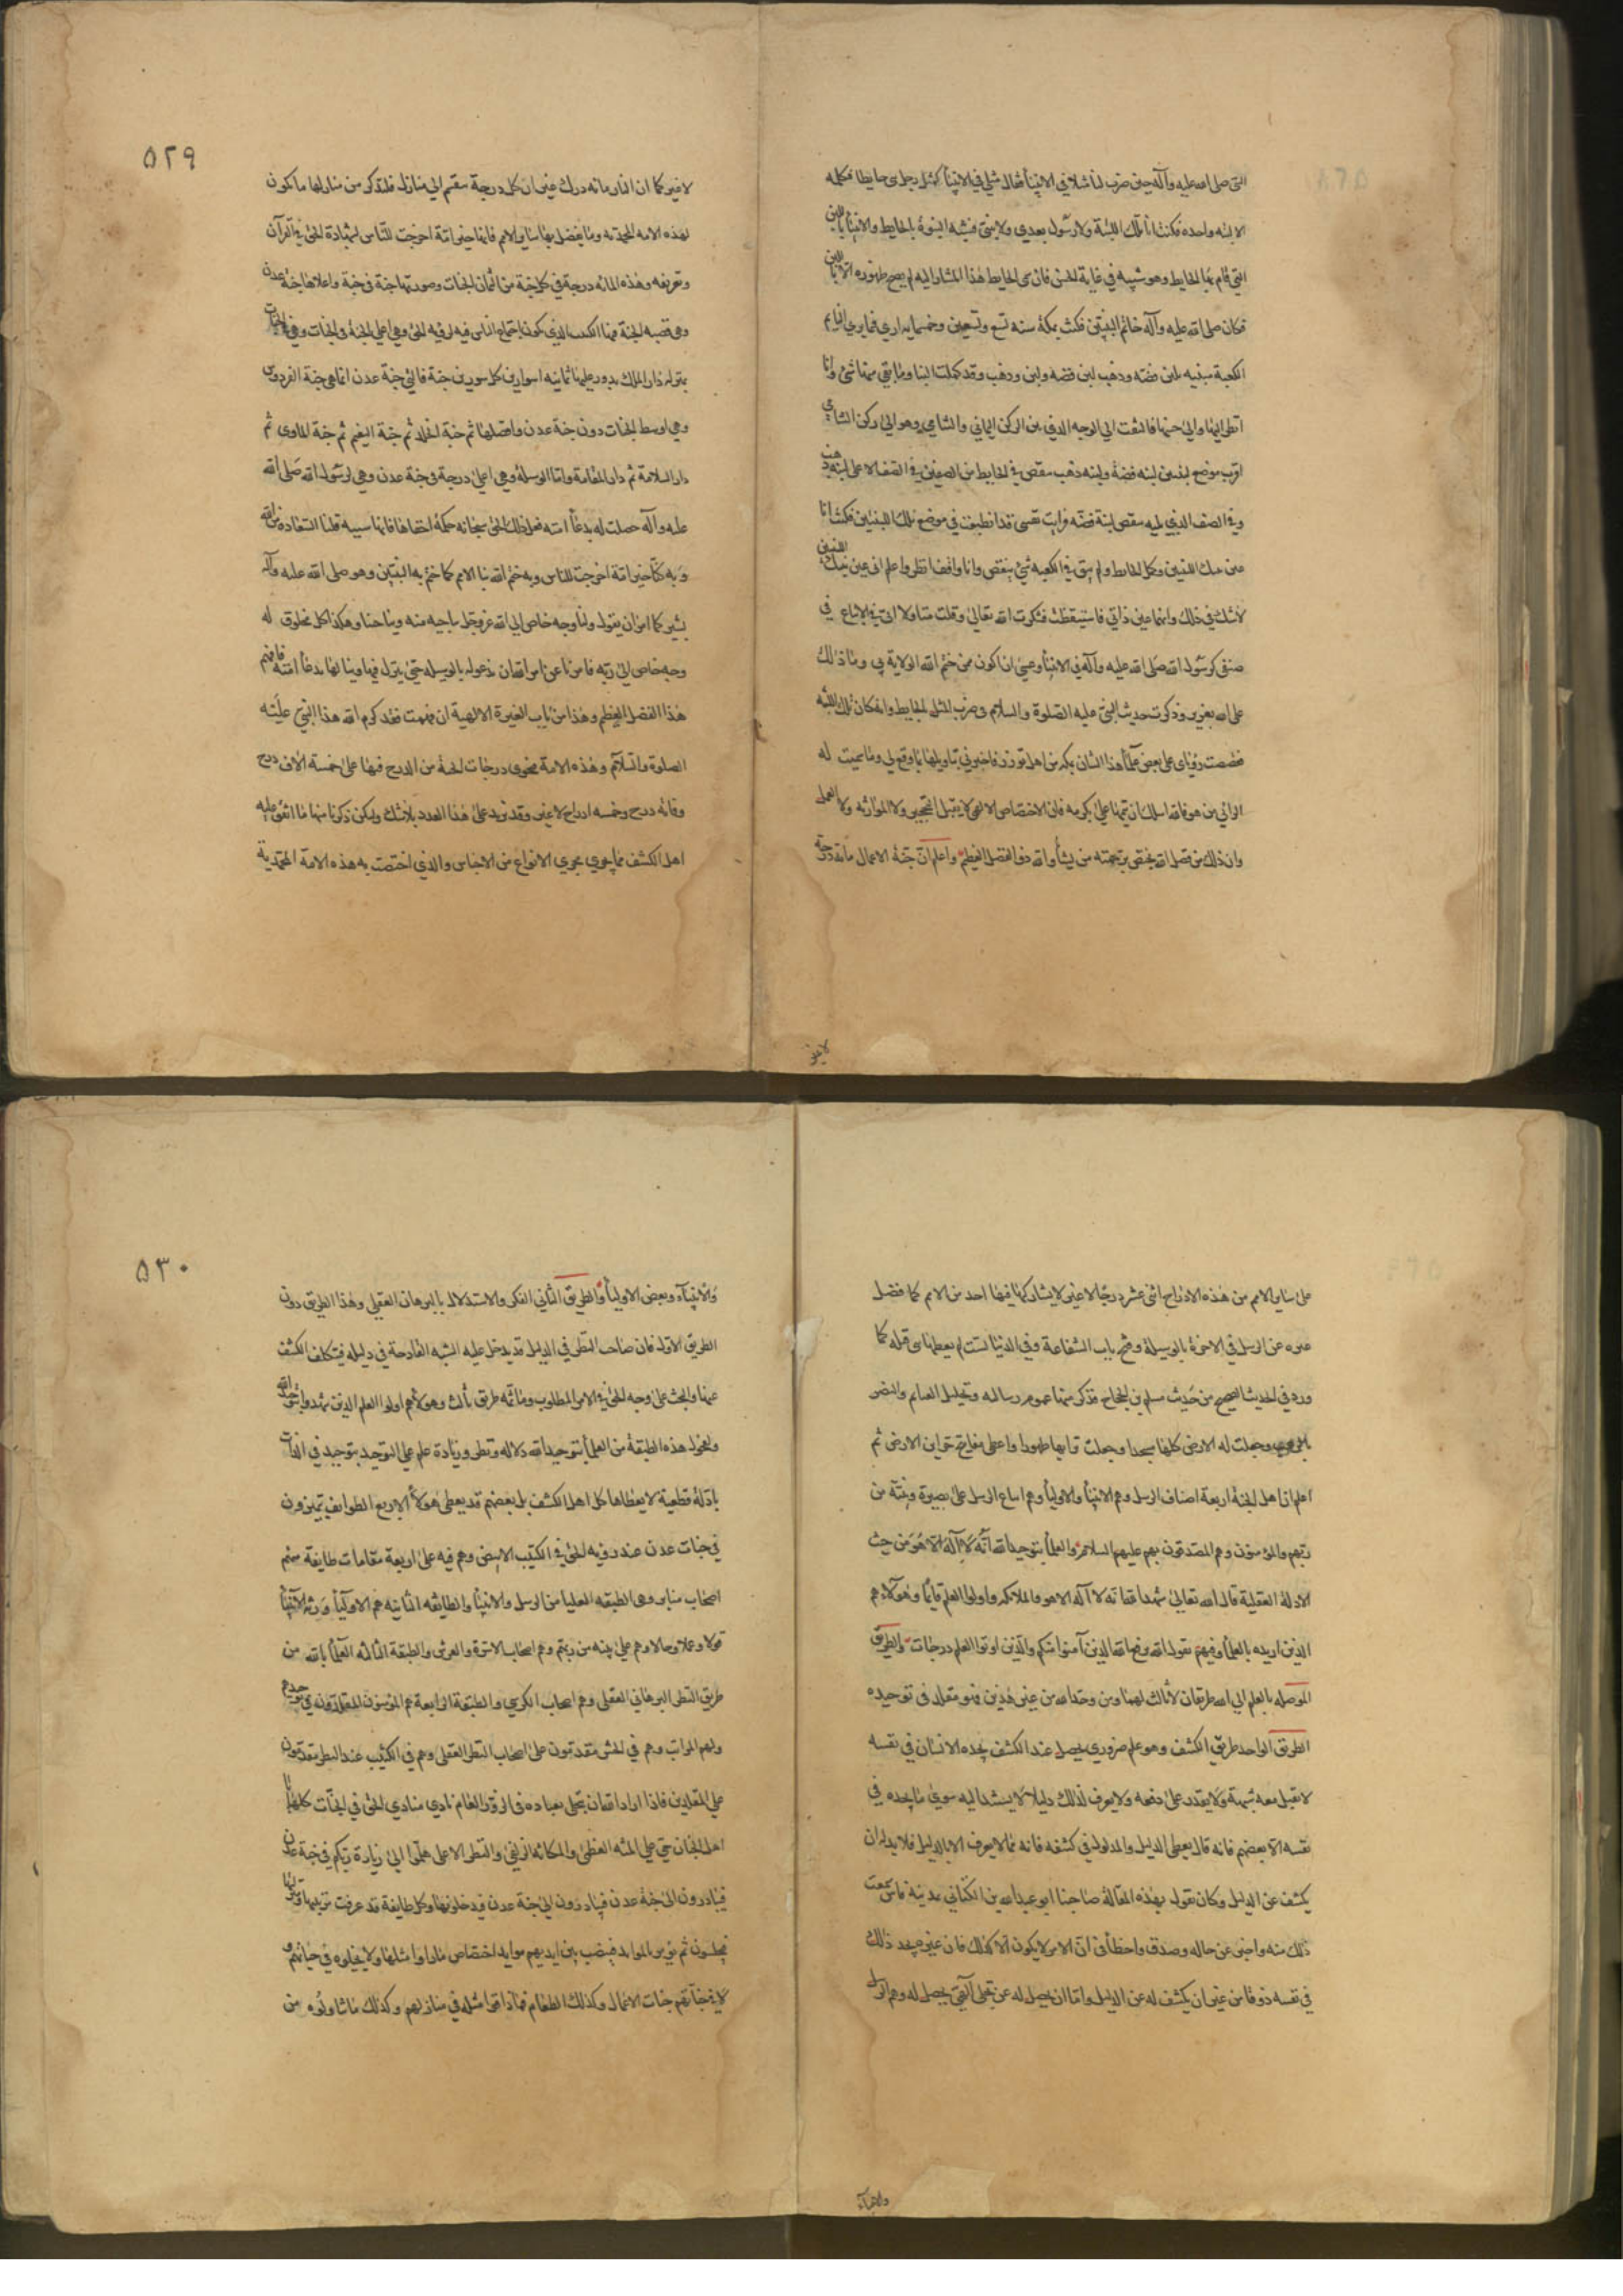 النبى صلى الله عليه وآله حين ضرب لنا مثلا فى الانبيا فقال مثلى فى الانبيا كمثل رجل بنى حايطا فكمله
الا لبنه واحده فكنت انا تلك اللبنة ولا رسول بعدى ولا نبى فشبه النبوة بالحايط والانبيا باللبن
التى قام بها الحايط وهو تشبيه فى غاية الحسن فان مسمى الحايط هذا المشار اليه لم يصح ظهوره الا باللبن
فكان صلى الله عليه وآله خاتم النبيين فكنت بمكة سنه تسع وتسعين وخمسمايه ارى فيما يرى النايم
الكعبة مبنيه بلبن فضه وذهب لبن فضه ولبن ذهب وقد كملت البنا وما بقى منها شئ وانا
انظر اليها والى حسنها فالتفت الى الوجه الذى بين الركن اليمانى والشامى وهو الى الركن الشامى
اقرب موضع لبنتين لبنه فضة ولبنه ذهب ينقص فى الحايط من الصفين فى الصف الاعلى لبنه ذهب
وفى الصف الذى يليه ينقص لبنة فضه فرايت نفسى قد انطبعت فى موضع تلك اللبنتين فكنت انا
عين تلك اللبنتين وكمل الحايط ولم يبق فى الكعبه شئ ينقص وانا واقف انظر واعلم انى عين تلك اللبنتين
لا شك فى ذلك وانهما عين ذاتى فاستيقظت فشكرت الله تعالى وقلت متاولا انى فى الاتباع فى
صنفى كرسول الله صلى الله عليه وآله فى الانبيا وعسى ان اكون ممن ختم الله الولاية بى وما ذلك
على الله بعزيز وذكرت حديث النبى عليه الصلوة والسلام فى ضرب المثل بالحايط وانه كان تلك اللبنه
فقصصت رؤياى على بعض علما هذا الشان بمكه من اهل توزر فاخبرنى بتاويلها بما وقع لى وما سميت له
الرائى من هو فالله اسال ان يتمها على بكرمه فان الاختصاص الالهى لا يقبل التحجير ولا الموازنه ولا العمل
وان ذلك من فضل الله يختص برحمته من يشا والله ذو الفضل العظيم واعلم ان جنة الاعمال مائة درجة
لا غير
٥٢٩
لا غير كما ان النار مائه درك غير ان كل درجة ينقسم الى منازل فلنذكر من منازلها ما يكون
لهذه الامه المحمديه وما يفضل بها على ساير الامم فانها خير امة اخرجت للناس بشهادة الحق فى القرآن
وتعريفه وهذه المائه درجة فى كل جنة من الثمان الجنات وصورتها جنة فى جنة واعلاها جنة عدن
وهى قصبه الجنة فيها الكثيب الذى يكون اجتماع الناس فيه لرؤيه الحق وهى اعلى الجنة فى الجنات وهى
بمنزله دار الملك يدور عليها ثمانيه اسوار بين كل سورين جنة فالتى تلى جنة عدن انما هى جنة الفردوس
وهى اوسط الجنات دون جنة عدن وافضلها ثم جنة الخلد ثم جنة النعيم ثم جنة الماوى ثم
دار السلامة ثم دار المقامة واما الوسيله وهى اعلى درجة فى جنة عدن وهى لرسول الله صلى الله
عليه وآله حصلت له بدعا امته فعل ذلك الحق سبحانه حكمة اخفاها فانها بسببه قلنا السعادة من الله
وبه كنا خير امة اخرجت للناس وبه ختم الله بنا الامم كما ختم به النبيين وهو صلى الله عليه وآله
بشر كما امر ان يقول ولنا وجه خاص الى الله عز وجل يناجيه منه ويناجينا وهكذا كل مخلوق له
وجه خاص الى ربه فامرنا عن امر الله ان ندعو له بالوسيله حتى ينزل فيها وينالها بدعا امته فافهم
هذا الفضل العظيم وهذا من باب الغيرة الالهية ان فهمت فلقد كرم الله هذا النبى عليه
الصلوة والسلام وهذه الامة فحوى درجات الجنة من الدرج فيها على خمسة الاف درج
ومائه درج وخمسه ادراج لا غير وقد تزيد على هذا العدد بلا شك ولكن ذكرنا منها ما اتفق عليه
اهل الكشف مما يجرى مجرى الانواع من الاجناس والذى اختصت به هذه الامة المحمدية
على ساير الامم من هذه الادراج اثنى عشر درجا لا غير لا يشاركها فيها احد من الامم كما فضل
غيره من الرسل فى الاخرة بالوسيلة وفتح باب الشفاعة وفى الدنيا بست لم يعطها نبى قبله كما
ورد فى الحديث الصحيح من حديث مسلم بن الحجاج فذكر منها عموم رسالته وتحليل الغنايم والنصر
بالرعب وجعلت له الارض كلها مسجدا وجعلت تربتها طهورا واعطى مفاتيح خزاين الارض ثم
اعلم ان اهل الجنة اربعة اصناف الرسل وهم الانبيا والاوليا وهم اتباع الرسل على بصيرة وبينة من
ربهم والمؤمنون وهم المصدقون بهم عليهم السلام والعلما بتوحيد الله انه لا اله الا هو من حيث
الادلة العقلية قال الله تعالى شهد الله انه لا اله الا هو والملائكه واولوا العلم قائما وهؤلاء هم
الذين اريده بالعلما وفيهم يقول الله يرفع الله الذين آمنوا منكم والذين اوتوا العلم درجات والطريق
الموصله بالعلم الى الله طريقان لا ثالث لهما ومن وحد الله من غير هذين فهو مقلد فى توحيده
الطريق الواحد طريق الكشف وهو علم ضرورى يحصل عند الكشف يجده الانسان فى نفسه
لا يقبل معه شبهة ولا يقدر على دفعه ولا يعرف لذلك دليلا يستند اليه سوى ما يجده فى
نفسه الا بعضهم فانه قال يعطى الدليل والمدلول فى كشفه فانه مما لا يعرف الا بالدليل فلا بد له ان
يكشف عن الدليل وكان يقول بهذه المقالة صاحبنا ابو عبد الله بن الكتانى بمدينة فاس سمعت
ذلك منه واخبر عن حاله وصدق واخطأ فى ان الامر لا يكون الا كذلك فان غيره يجد ذلك
فى نفسه ذوقا من غير ان يكشف له عن الدليل واما ان يحصل له عن تجلى آلهى يحصل له وهم الرسل
والانبياء
٥٣٠
والانبيآء وبعض الاوليا والطريق الثانى الفكر والاستدلال بالبرهان العقلى وهذا الطريق دون
الطريق الاول فان صاحب النظر فى الدليل قد يدخل عليه الشبه القادحة فى دليله فيتكلف الكشف
عنها والبحث على وجه الحق فى الامر المطلوب وما ثمه طريق ثالث وهؤلاء هم اولوا العلم الذين شهدوا بتوحيد الله
ولفحول هذه الطبقة من العلما بتوحيد الله دلاله ونظر وزيادة علم على التوحيد بتوحيد فى الذات
بادلة قطعية لا يعطاها كل اهل الكشف بل بعضهم قد يعطى وهؤلاء الاربع الطوايف يتميزون
فى جنات عدن عند رؤيه الحق فى الكثيب الابيض وهم فيه على اربعة مقامات طايفة منهم
اصحاب منابر وهى الطبقه العليا من الرسل والانبيا والطايفه الثانيه هم الاوليا ورثة الانبيا
قولا وعملا وحالا وهم على بينه من ربهم وهم اصحاب الاسرة والعرش والطبقة الثالثه العلما بالله من
طريق النظر البرهانى العقلى وهم اصحاب الكرسى والطبقة الرابعة هم المؤمنون المقلدون فى توحيدهم
ولهم المراتب وهم فى الحشر مقدمون على اصحاب النظر العقلى وهم فى الكثيب عند النظر يتقدمون
على المقلدين فاذا اراد الله ان يتجلى بعباده فى الزور العام نادى منادى الحق فى الجنات كلها يا
اهل الجنان حى على المنه العظمى والمكانه الزلفى والنظر الاعلى هلموا الى زيارة ربكم فى جنة عدن
فيبادرون الى جنة عدن فيدخلونها وكل طايفة قد عرفت مرتبتها ومنزلتها
فيجلسون ثم يؤمر بالموايد فينصب بين ايديهم موايد اختصاص ما راوا مثلها ولا تخيلوه فى حياتهم و
لا فى جناتهم جنات الاعمال وكذلك الطعام ما ذاقوا مثله فى منازلهم وكذلك ما تناولوه من